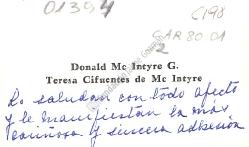 01394
C198
AR 80 01
2
Donald Mc Intyre G.
Teresa Cifuentes de Mc Intyre
Lo saludan con todo afecto
y le manifiestan la más
cariñosa y sincera adhesión